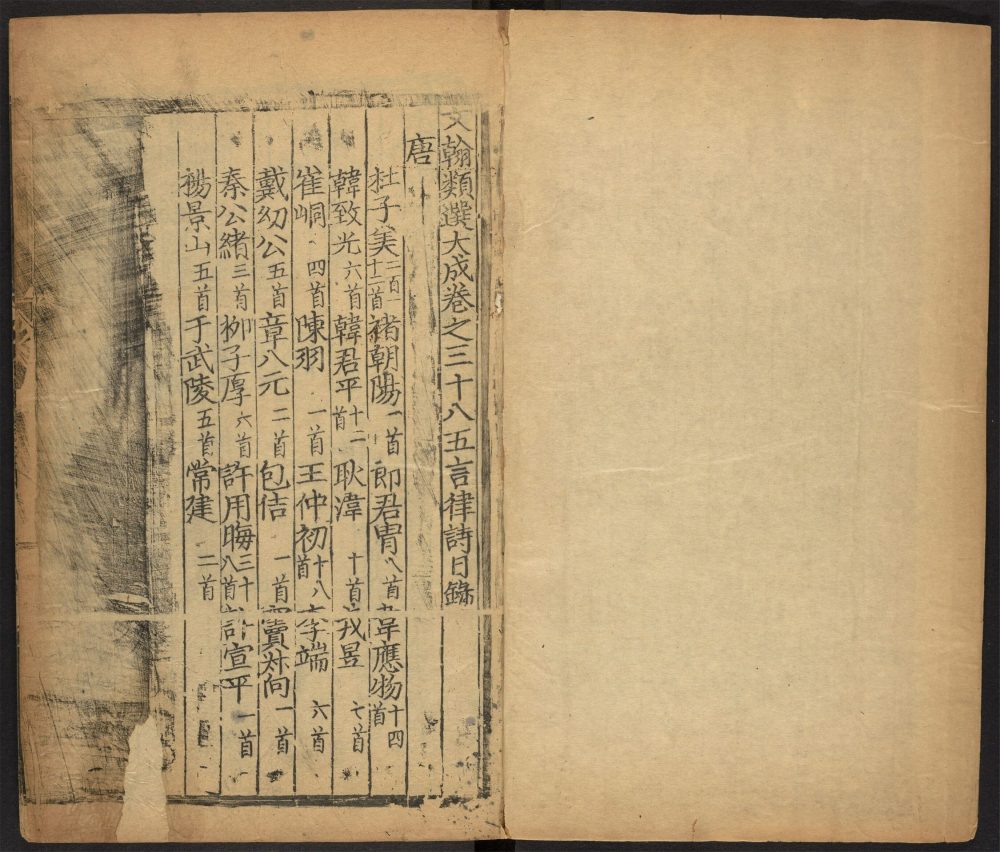 文翰類選大成卷之三十八五言律詩目錄
唐
杜子美二百一十二首 褚朝陽一首 郎君冑八首 韋應物十四首
韓致光六首 韓君平十二首 耿湋十首 戎昱七首
崔峒四首 陳羽一首 王仲初十八首 李端六首
戴幼公五首 章八元二首 包佶一首 竇叔向一首
秦公緒三首 柳子厚六首 許用晦三十八首 許宣平一首
楊景山五首 于武陵五首 常建二首